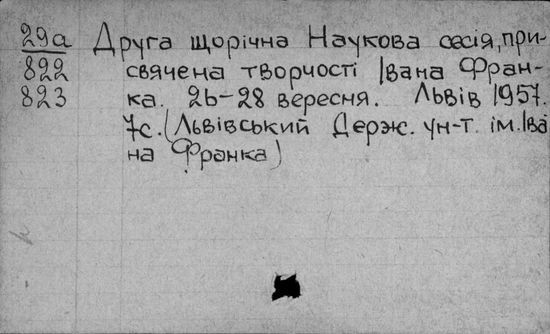 29а Друга щорічна Наукова сесія, при-
822 свячена творчості Івана Фран-
823 ка. 26-28 вересня. Львів 1957.
7с. (Львівський Держ. ун-т. ім. Іва
на Франка)